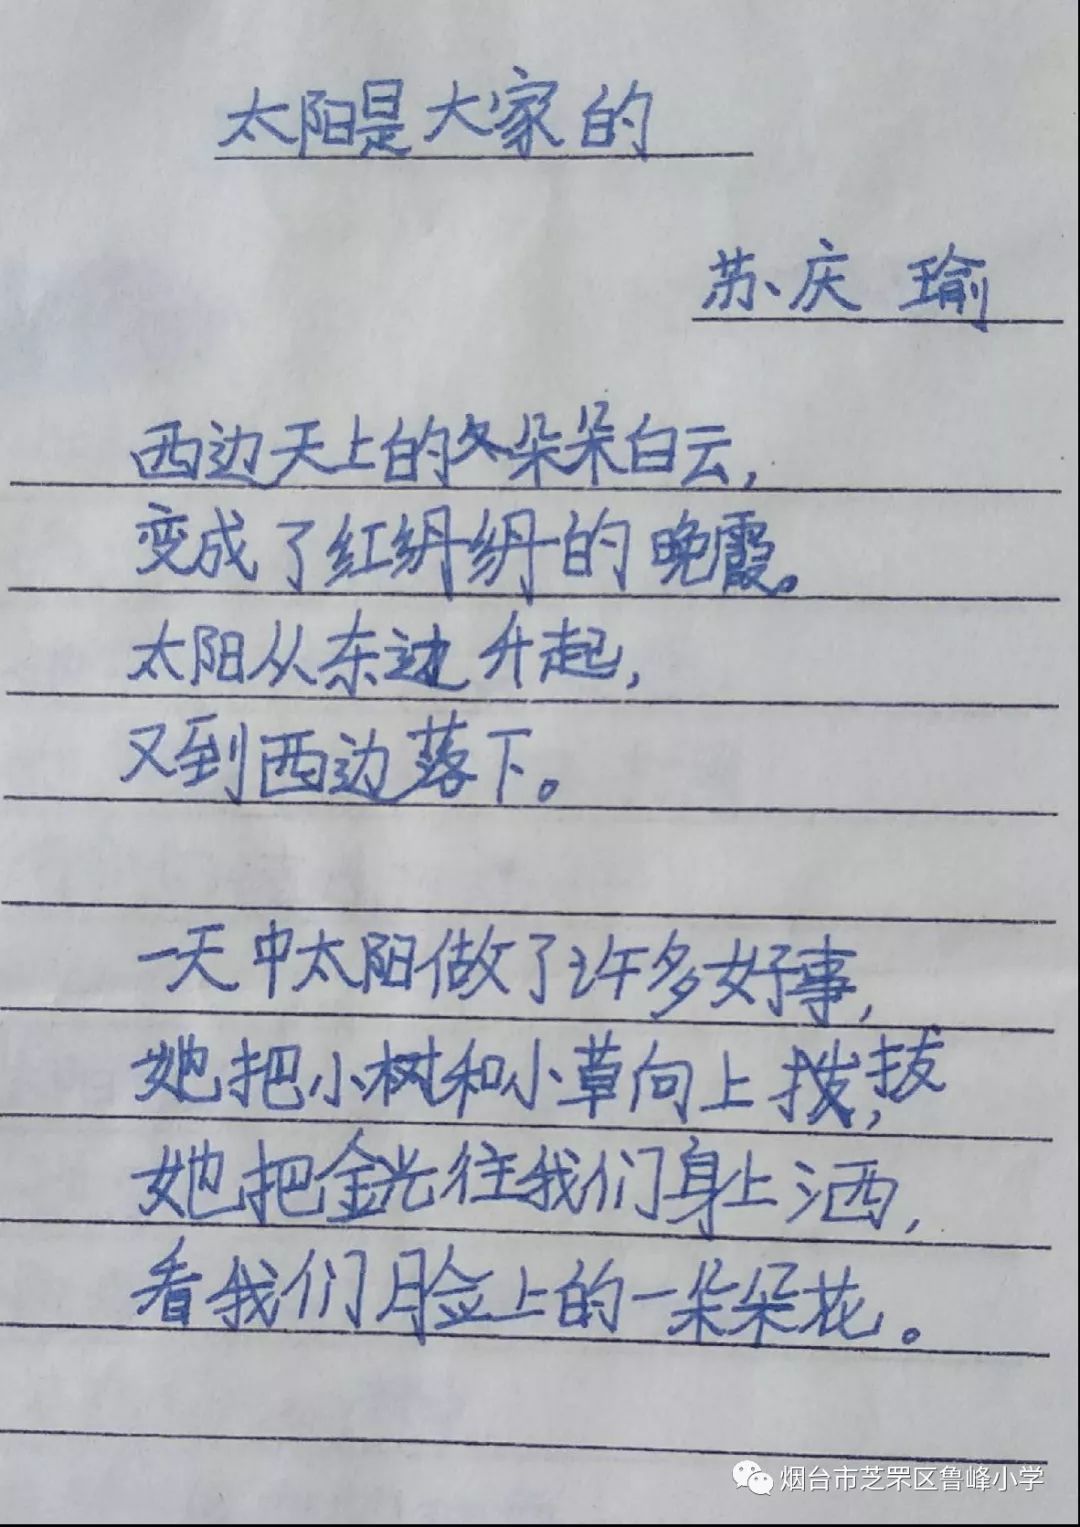 太阳是大家的
苏庆瑜
西边天上的朵朵白云，
变成了红绢绢的晚霞。
太阳从东边升起，
又到西边落下。
一天中太阳做了许多好事，
她把小树和小草向上拔，拔
她把金光往我们身上洒，
看我们脸上的一朵朵花。
烟台市芝罘区鲁峰小学